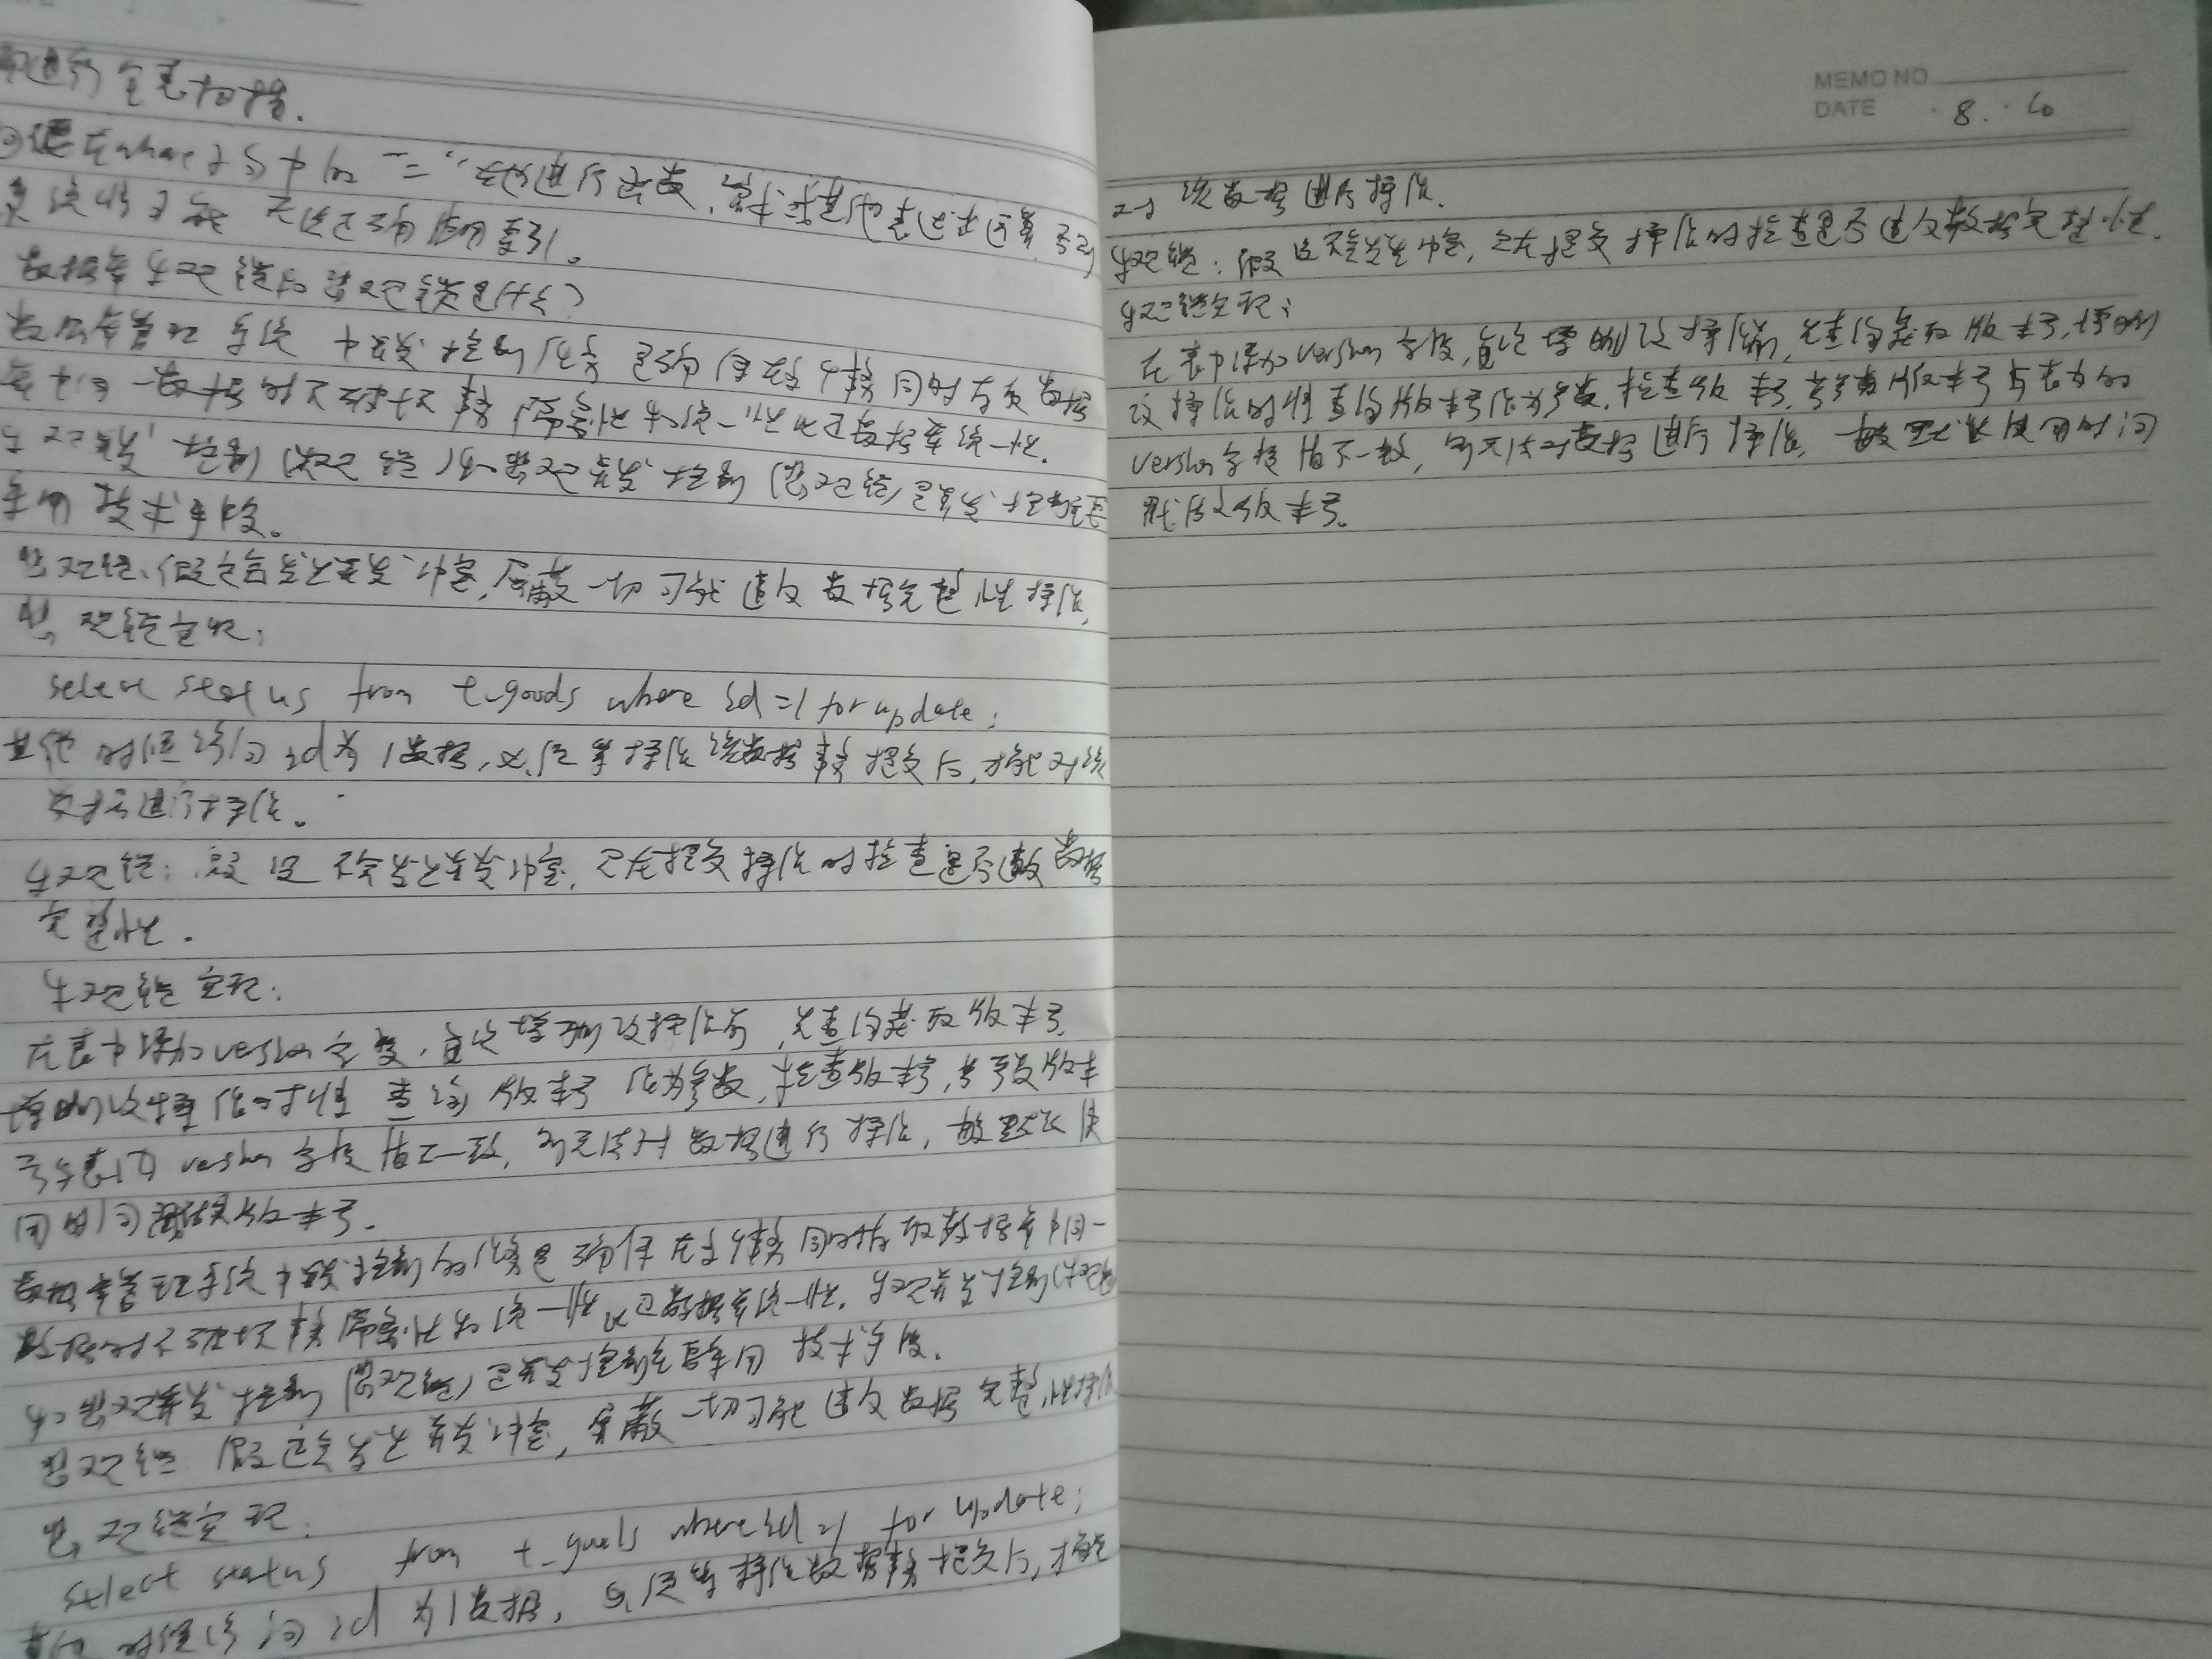 而进行全表扫描。
不要在where子句中的"="左边进行函数、算术运算或其他表达式运算,否则
系统将可能无法正确使用索引。
数据库乐观锁和悲观锁是什么?
数据库管理系统中并发控制任务是确保在多个事务同时存取数据
库中同一数据时不破坏事务隔离性和统一性以及数据库统一性。
乐观并发控制(乐观锁)和悲观并发控制(悲观锁)是并发控制主要
采用技术手段。
悲观锁:假定会发生并发冲突,屏蔽一切可能违反数据完整性操作。
悲观锁实现:
select status from t_goods where id=1 for update;
其他的 访问id为1数据,必须等操作该数据事务提交后,才能对该
数据进行操作。
乐观锁:假设不会发生并发冲突,只在提交操作时检查是否违反数据
完整性。
乐观锁实现:
在表中添加version字段,每次增删改操作前,先查询获取版本号,
增删改操作时将查询版本号作为参数,检查版本号,若参数版本
号与表内version字段值不一致,则无法对数据进行操作,
同时 版本号。
数据库管理系统中并发控制的任务是确保在多个事务同时存取数据库中同一
数据时不破坏事务隔离性和统一性以及数据库统一性。乐观并发控制(乐观锁
)和悲观并发控制(悲观锁)是并发控制主要采用技术手段。
悲观锁:假定会发生并发冲突,屏蔽一切可能违反数据完整性操作
悲观锁实现:
select status from t_goods where id=1 for update;
其他 访问id为1数据,必须等操作该数据事务提交后,才能
MEMO NO.
DATE 8.10
对该数据进行操作.
乐观锁:假设不会发生冲突,只在提交操作时检查是否违反数据完整性.
乐观锁实现:
在表中添加version字段,每次增删改操作前,先查询获取版本号,增删
改操作时将查询版本号作为参数,检查版本号,若参数版本号与表内的
version字段值不一致,则无法对数据进行操作,
版本号。